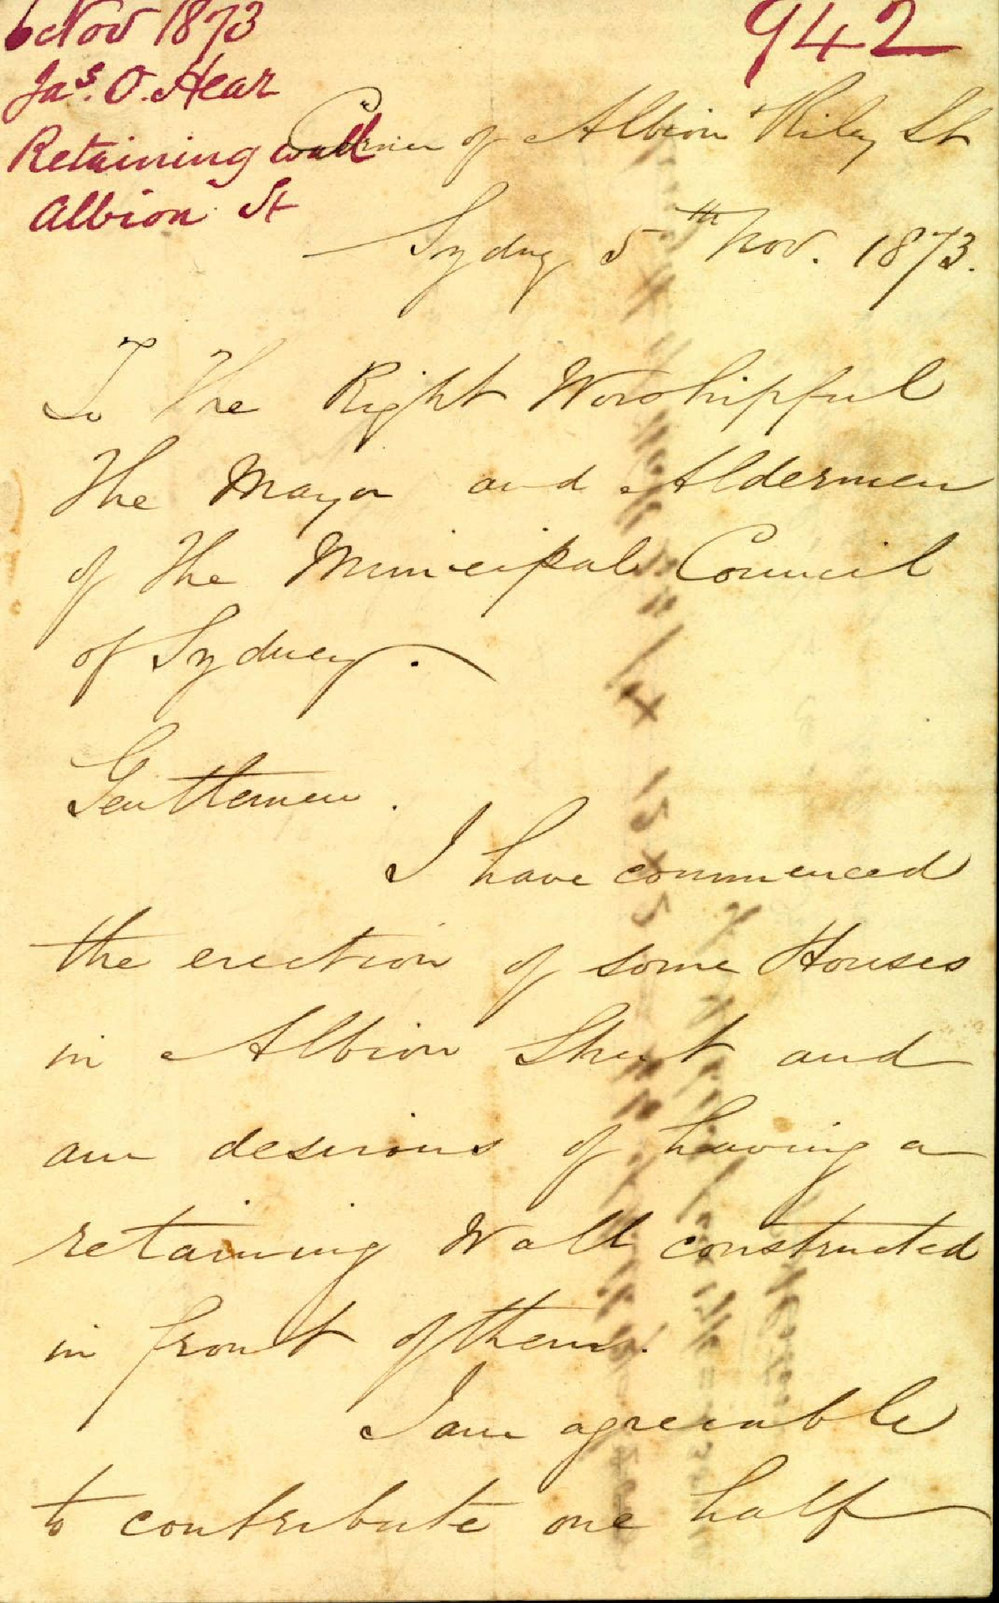 6 Nov 1873
942
Jas. O. Hear
Retaining wall
Albion St
Corner of Albion & Riley St
Sydney 5th Nov. 1873.
To The Right Worshipful
The Mayor and Aldermen
of The Municipal Council
of Sydney.
Gentlemen.
I have commenced
the erection of some Houses
in Albion Street and
am desirous of having a
retaining Wall constructed
in front of them.
I am agreeable
to contribute one half